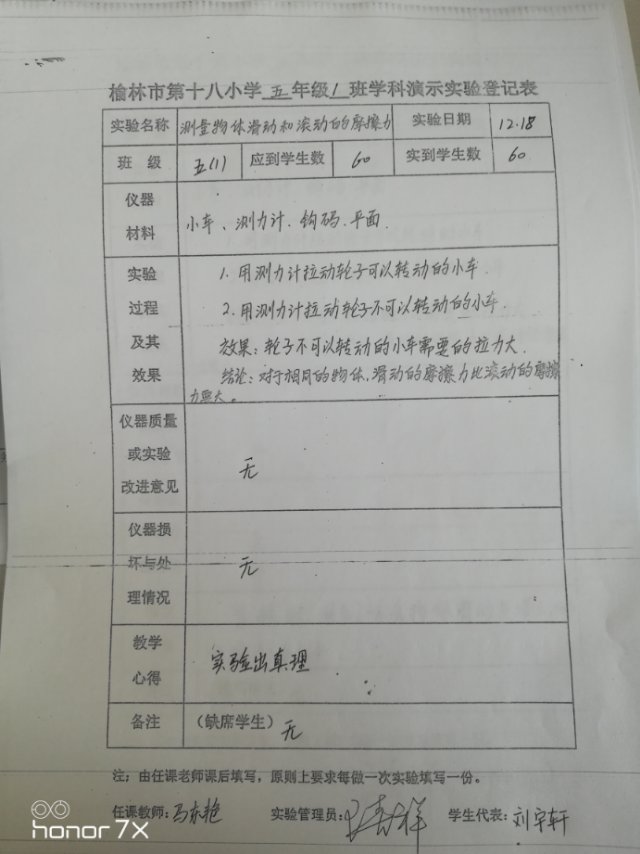 榆林市第十八小学五年级1班学科演示实验登记表
实验名称 测量物体滑动和滚动的摩擦力 实验日期 12.18
班 级 五(1) 应到学生数 60 实到学生数 60
仪器
材料
小车、测力计、钩码、平面.
实验
过程
及其
效果
1. 用测力计拉动轮子可以转动的小车.
2. 用测力计拉动轮子不可以转动的小车.
效果：轮子不可以转动的小车需要的拉力大.
结论：对于相同的物体,滑动的摩擦力比滚动的摩擦
力要大。
仪器质量
或实验
改进意见
无
仪器损
坏与处
理情况
无
教学
心得
实验出真理
备注 (缺席学生) 无
注：由任课老师课后填写，原则上要求每做一次实验填写一份。
任课教师：马东艳 实验管理员： 学生代表：刘宇轩
honor 7X